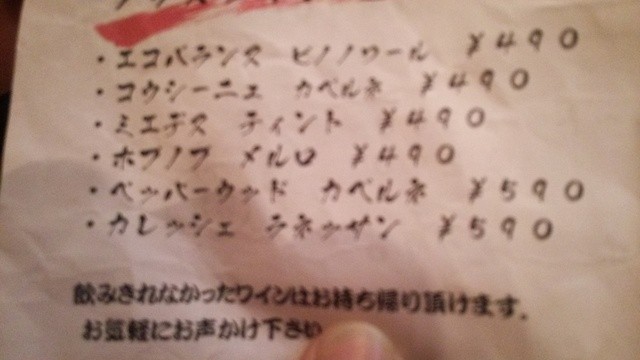 ・エコバランス ピノノワール ¥490
・コウシーニェ カベルネ ¥490
・ミエデス ティント ¥490
・ホブノブ メルロ ¥490
・ペッパーウッド カベルネ ¥590
・カレッシェ ラネッサン ¥590
飲みきれなかったワインはお持ち帰り頂けます。
お気軽にお声かけ下さい